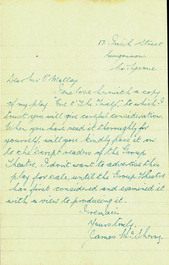 Dear Mr O'Malley
I enclose herewith a copy
of my play to which I
trust you will give careful consideration.
When you have read it thoroughly for
yourself, will you kindly pass it on
to the script readers of the Group
Theatre. I don't want to advertise this
play for sale until the Group Theatre
has first considered and examined it
with a view to producing it.
I remain
Yours truly,